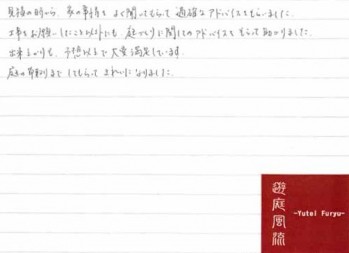 見積の時から、家の事情もよく聞いてもらって適確なアドバイスをもらいました。
工事をお願いしたこと以外にも、庭づくりに関してのアドバイスももらって助かりました。
出来上がりも、予想以上で大変満足しています。
庭の草刈りまでしてもらってきれいになりました。
遊庭風流
-Yutei Furyu-